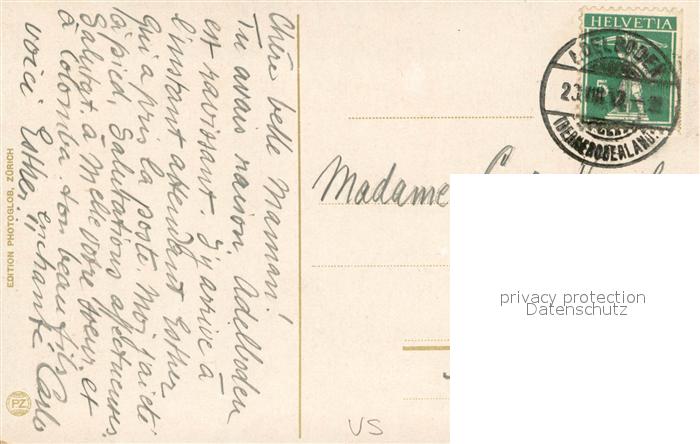 Chère belle Maman!
Tu avais raison, Adelboden
est ravissant. J'y arrive à
l'instant attendant Esther
qui a pris la poste. Moi j'ai été
à pied. Salutations affectueuses.
Salugt. à Melle votre soeur et
à Colomba. ton beau fils
enchanté Carlo
voici Esther!
EDITION PHOTOGLOB, ZÜRICH
PZ
Madame
HELVETIA
5
ADELBODEN
(BERNEROBERLAND)
privacy protection
Datenschutz
VS